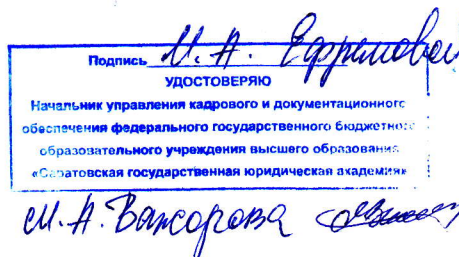 Подпись М. А. Ефремовой
УДОСТОВЕРЯЮ
Начальник управления кадрового и документационного
обеспечения федерального государственного бюджетного
образовательного учреждения высшего образования
«Саратовская государственная юридическая академия»
М. А. Важорова